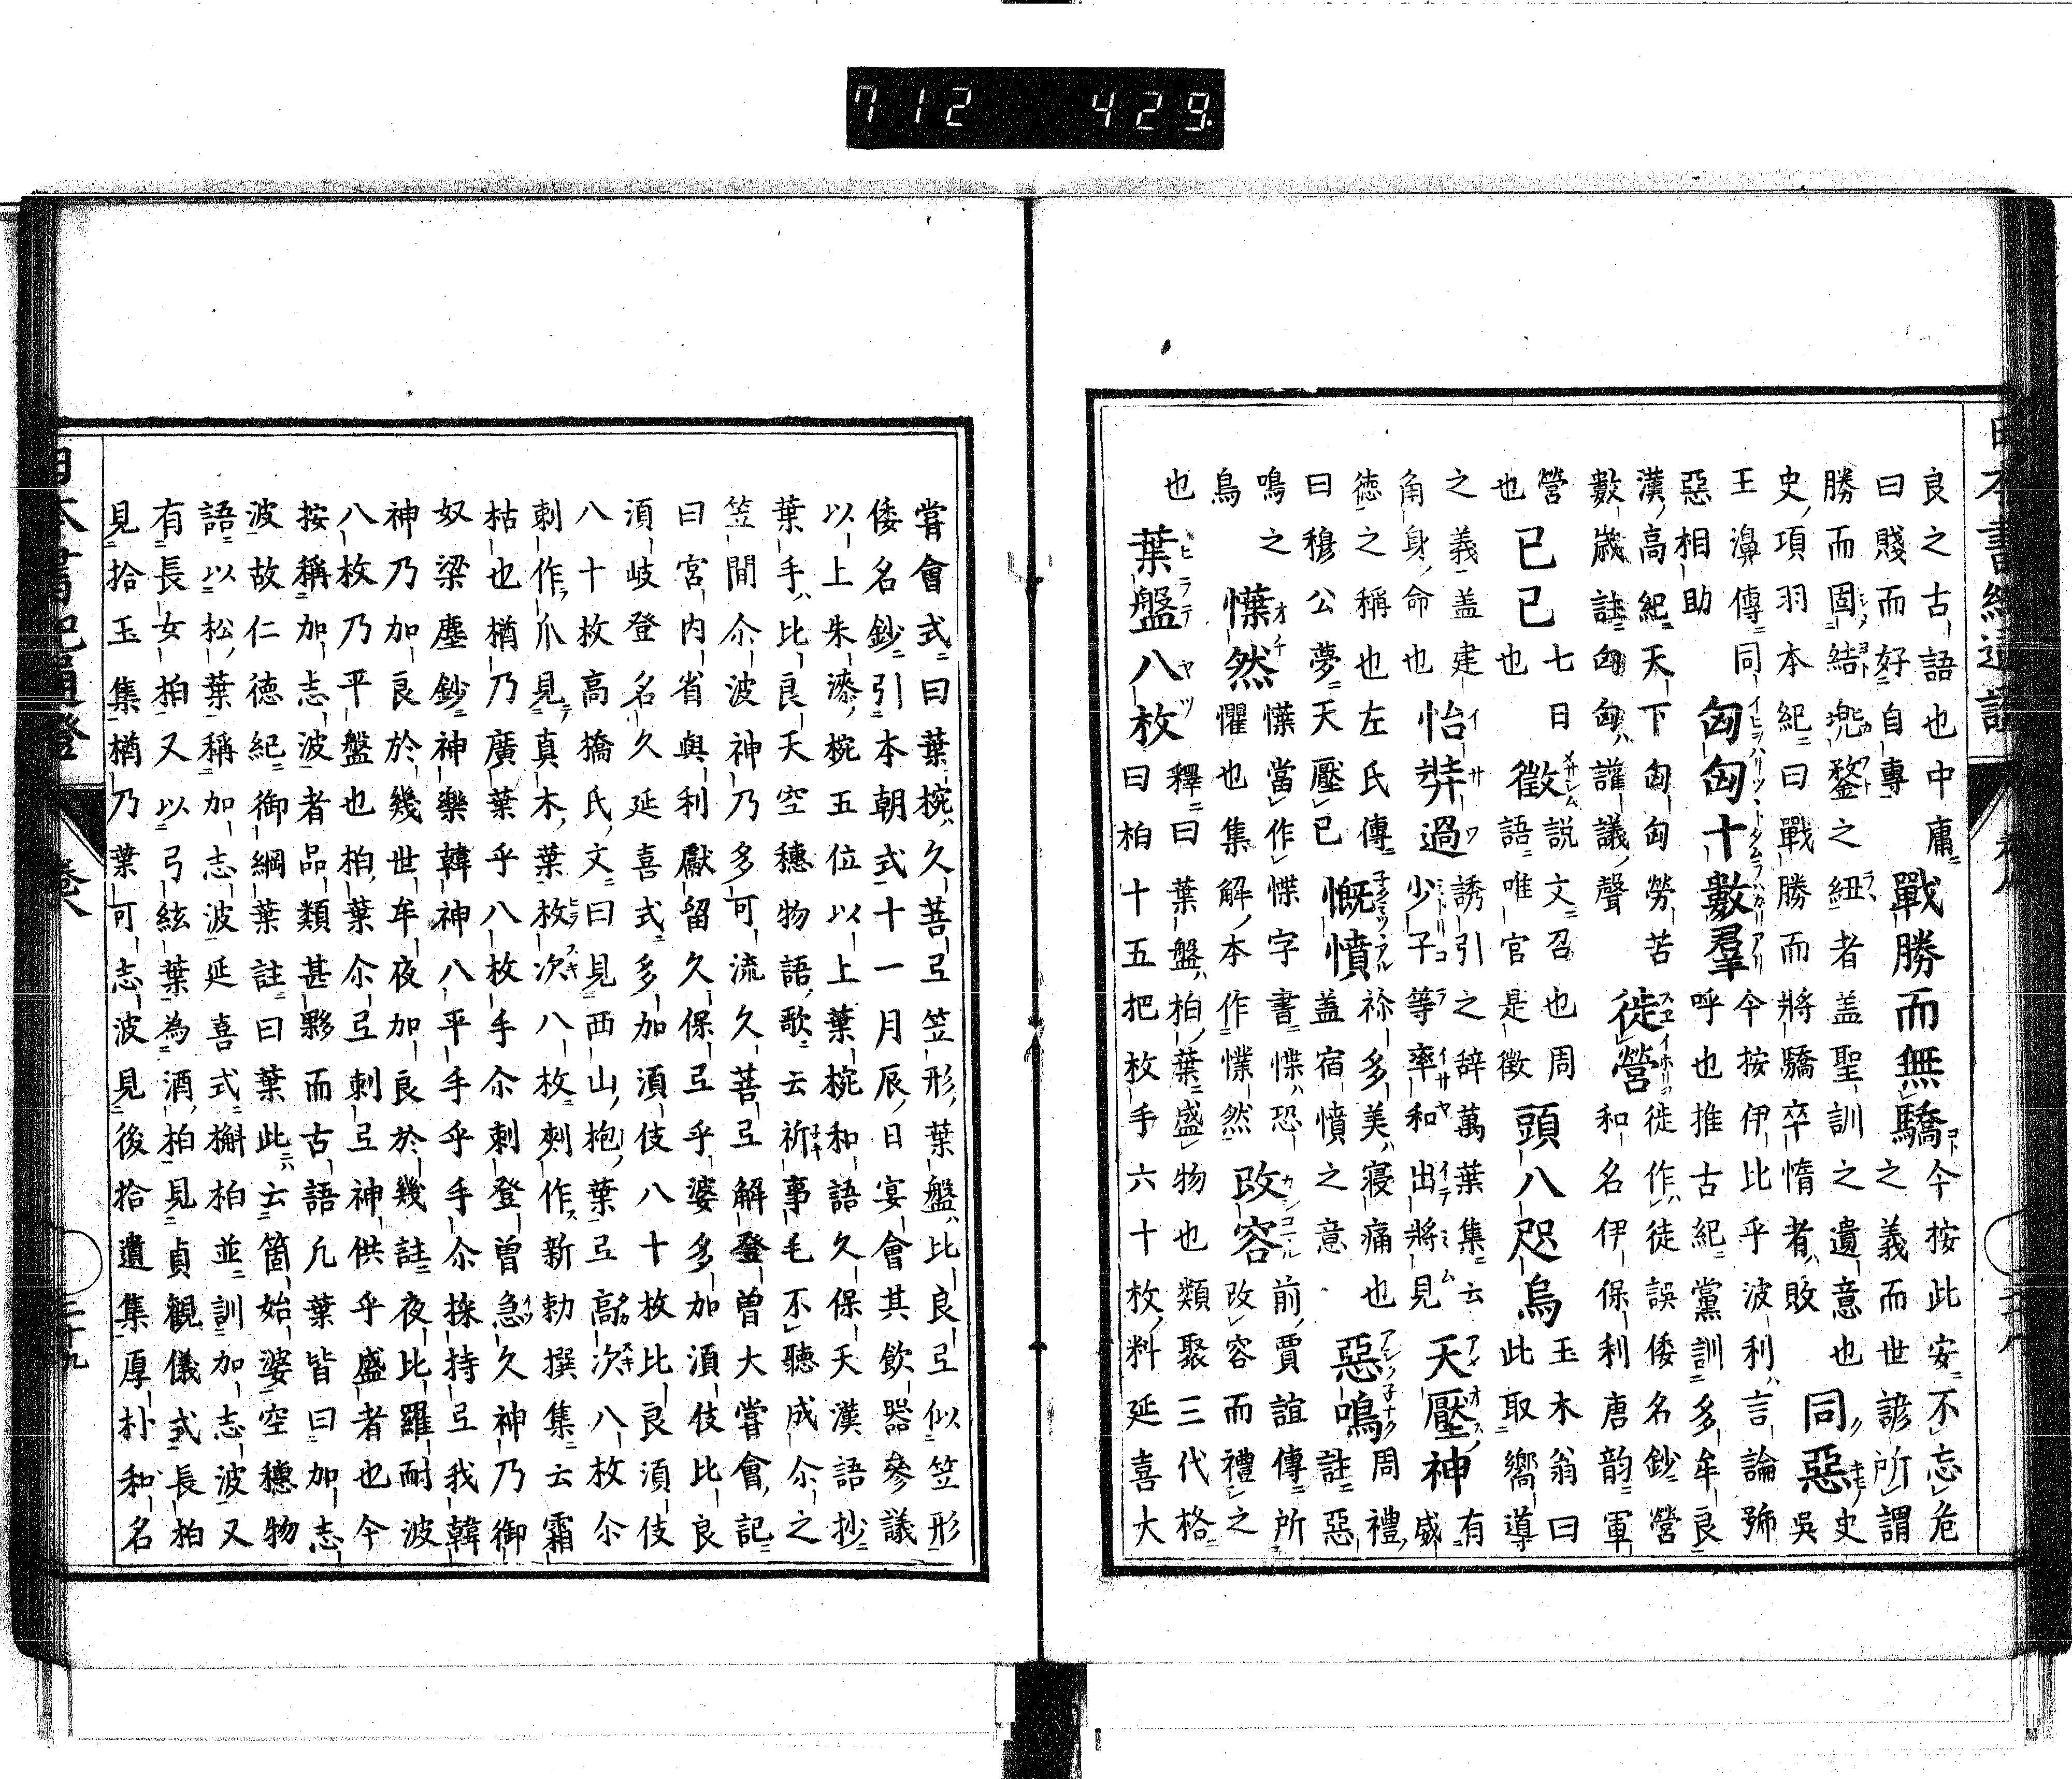 良之古語也中庸
曰賤而好自專
戰勝而無驕
今按此安不忘危
之義而世諺所謂
勝而固結兜鍪之紐者盖聖訓之遺意也
同惡
史
史項羽本紀曰戰勝而將驕卒惰者敗
吳
王濞傳同
惡相助
匈匈十數羣
今按伊比乎波利言論號
呼也推古紀黨訓多牟良
漢高紀天下匈匈勞苦
數歳註匈匈讙議聲
徙營
徙作徒誤倭名鈔營
和名伊保利唐韵軍
營
也
已巳
七日
也
徵
説文召也周
語唯官是徵
頭八咫烏
玉木翁曰
此取嚮導
之義盖建
角身命也
怡奘過
誘引之辞萬葉集云
少子等率和出將見
天壓神
有
威
徳之稱也左氏傳
曰穆公夢天壓已
慨憤
祢多美寢痛也
盖宿憤之意
惡鳴
周禮
註惡
鳴之
鳥
㦜然
㦜當作惵字書惵恐
懼也集解本作惵然
改容
前賈誼傳所
改容而禮之
也
葉盤八枚
釋曰葉盤柏葉盛物也類聚三代格
曰柏十五把枚手六十枚料延喜大
嘗會式曰葉椀久菩弖笠形葉盤比良弖似笠形
倭名鈔引本朝式十一月辰日宴會其飲器參議
以上朱漆椀五位以上葉椀和語久保天漢語抄
葉手比良天空穗物語歌云祈事毛不聽成尒之
笠間尒波神乃多可流久菩弖解登曽大嘗會記
曰宮内省與利獻留久保弖乎婆多加湏伎比良
湏岐登名久延喜式多加湏伎八十枚比良湏伎
八十枚高橋氏文曰見西山抱葉弖高次八枚尒
刺作爪見真木葉枚次八枚刺作新勅撰集云霜
枯也楢乃廣葉乎八枚手尒刺登曽急久神乃御
奴梁塵鈔神樂韓神八平手乎手尒採持弖我韓
神乃加良於幾世牟夜加良於幾註夜比羅耐波
八枚乃平盤也柏葉尒弖刺弖神供乎盛者也今
按稱加志波者品類甚夥而古語凢葉皆曰加志
波故仁徳紀御綱葉註曰葉此云箇始婆空穗物
語以松葉稱加志波延喜式槲柏並訓加志波又
有長女柏又以弓絃葉為酒柏見貞觀儀式長柏
見拾玉集楢乃葉可志波見後拾遺集厚朴和名
日本書紀通證
卷八
二十九